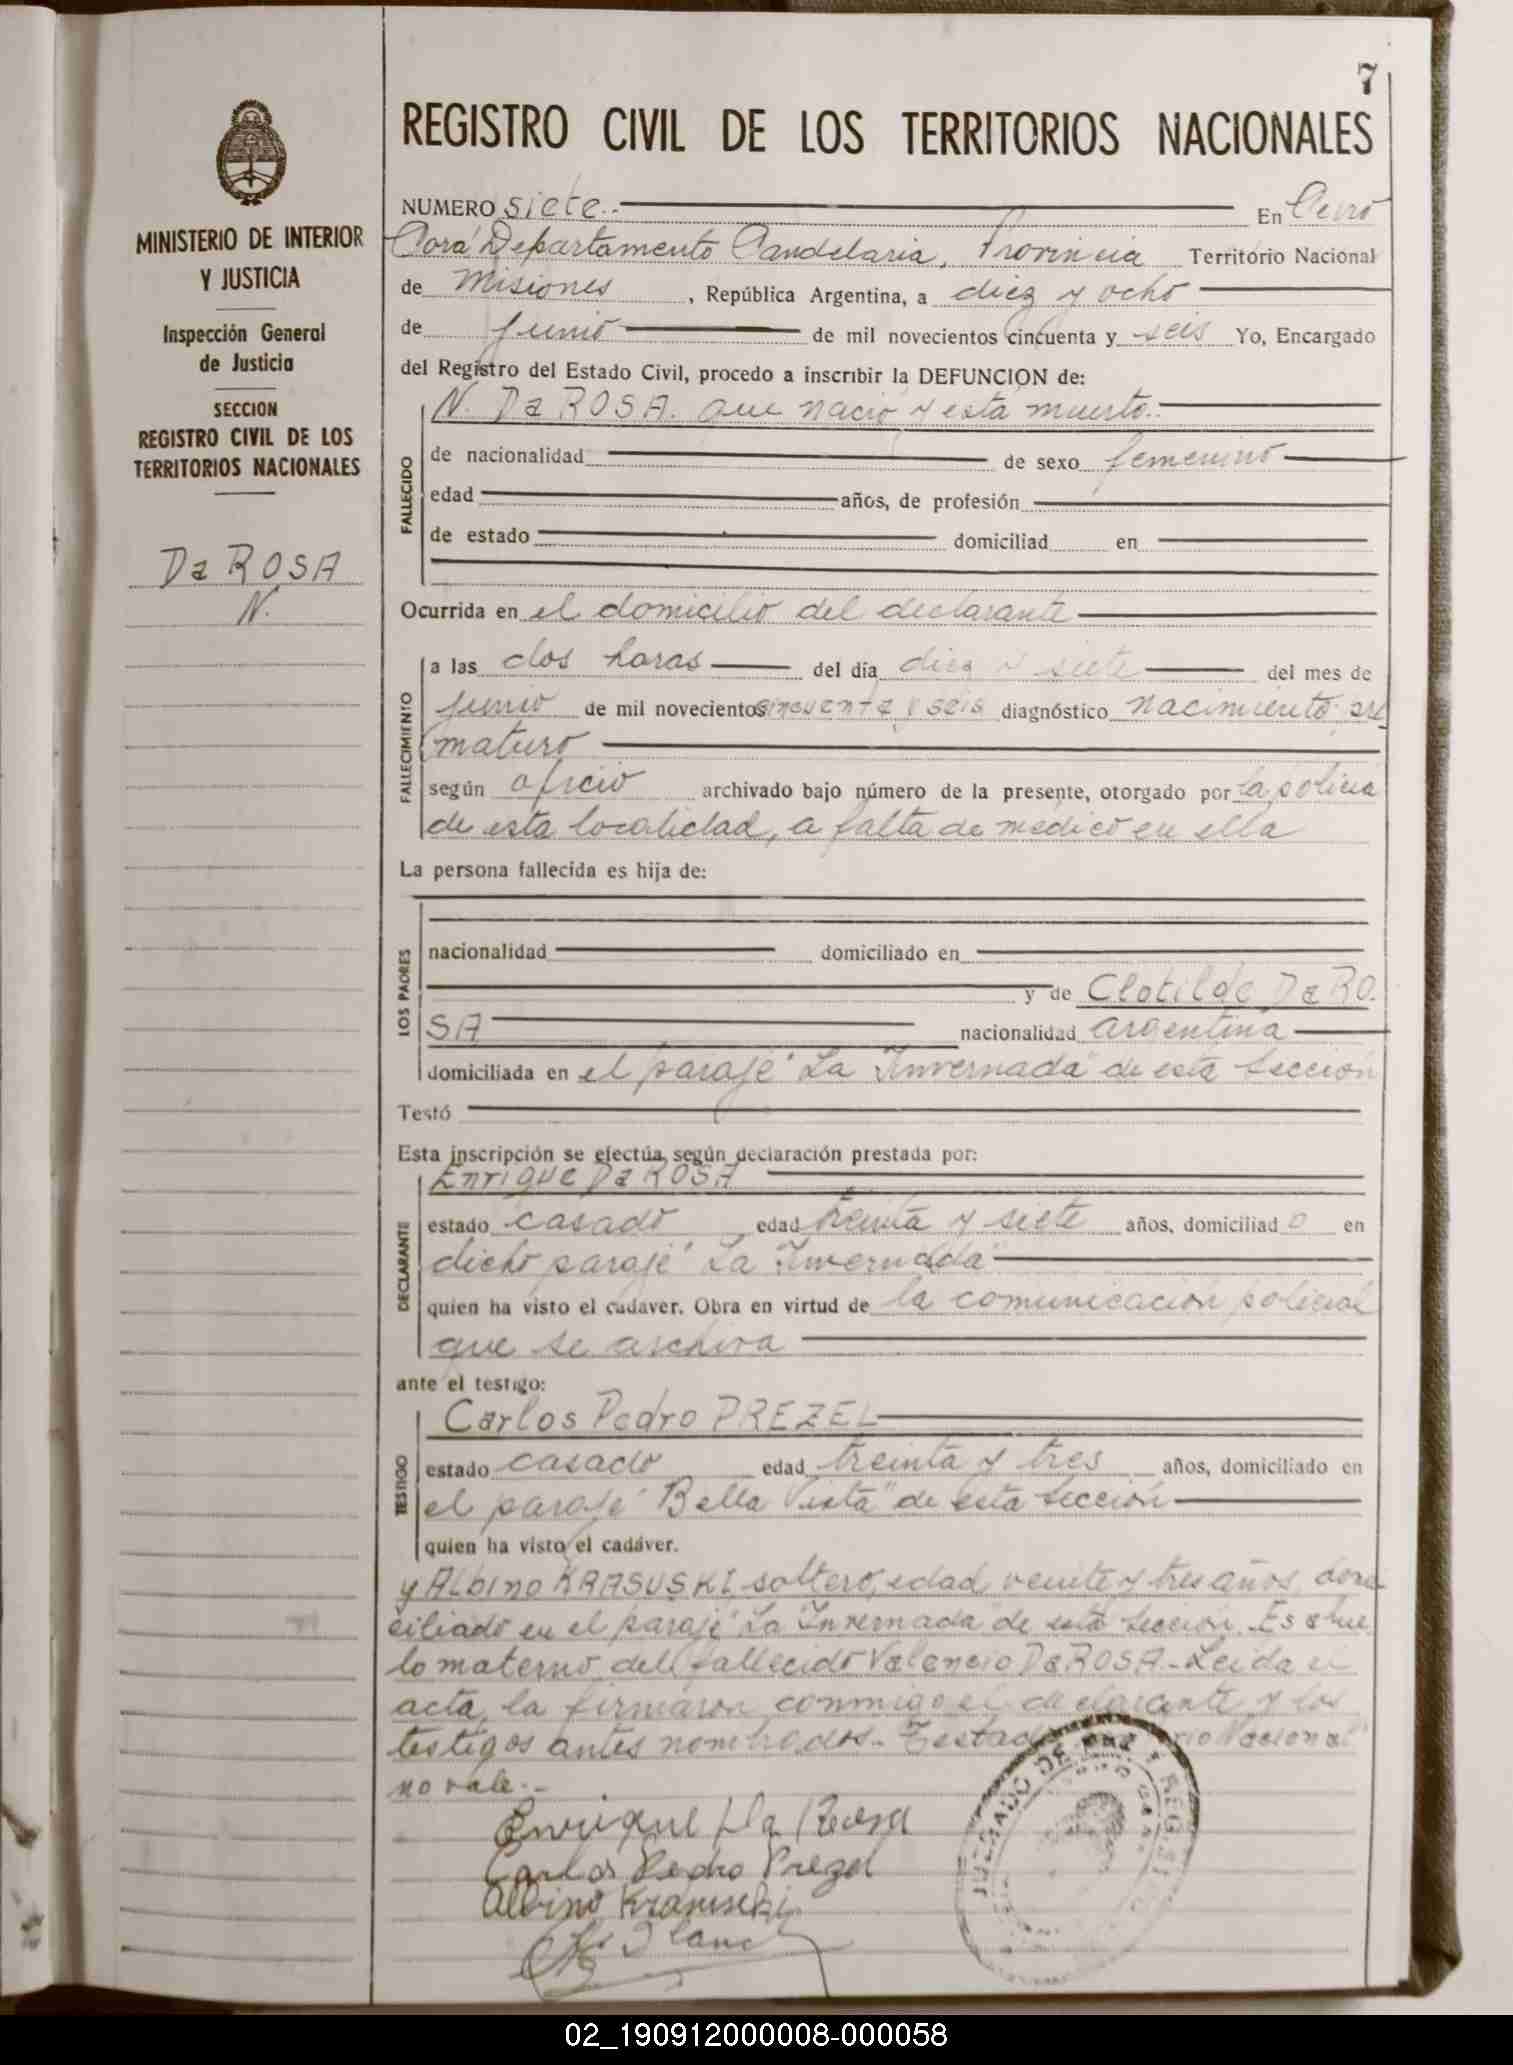 7
REGISTRO CIVIL DE LOS TERRITORIOS NACIONALES
MINISTERIO DE INTERIOR
Y JUSTICIA
Inspección General
de Justicia
SECCION
REGISTRO CIVIL DE LOS
TERRITORIOS NACIONALES
Da ROSA
N.
NUMERO siete.- En Cerro
Corá Departamento Candelaria, Provincia Territorio Nacional
de Misiones, República Argentina, a diez y ocho
de junio de mil novecientos cincuenta y seis Yo, Encargado
del Registro del Estado Civil, procedo a inscribir la DEFUNCION de:
FALLECIDO
N. Da ROSA. que nació y está muerto.-
de nacionalidad de sexo femenino
edad años, de profesión
de estado domiciliad en
Ocurrida en el domicilio del declarante
FALLECIMIENTO
a las dos horas del día diez y siete del mes de
junio de mil novecientos cincuenta y seis diagnóstico nacimiento pre
maturo
según oficio archivado bajo número de la presente, otorgado por la policia
de esta localidad, a falta de médico en ella
La persona fallecida es hija de:
LOS PADRES
nacionalidad domiciliado en
y de Clotilde Da RO.
SA nacionalidad argentina
domiciliada en el paraje "La Invernada" de esta sección
Testó
Esta inscripción se efectúa según declaración prestada por:
DECLARANTE
Enrique Da ROSA
estado casado edad treinta y siete años, domiciliad o en
dicho paraje "La Invernada"
quien ha visto el cadaver. Obra en virtud de la comunicación policial
que se archiva
ante el testigo:
TESTIGO
Carlos Pedro PREZEL
estado casado edad treinta y tres años, domiciliado en
el paraje "Bella Vista" de esta sección
quien ha visto el cadáver.
y Albino KRASUSKI, soltero, edad veinte y tres años, domi
ciliado en el paraje "La Invernada" de esta sección. Es abue
lo materno del fallecido Valencio Da ROSA.- Leida el
acta, la firmaron conmigo el declarante y los
testigos antes nombrados.- Testado rio Nacional"
no vale.-
Enrique Da Rosa
Carlos Pedro Prezel
Albino Krasuski
JUZGADO DE PAZ Y REG.
02_190912000008-000058